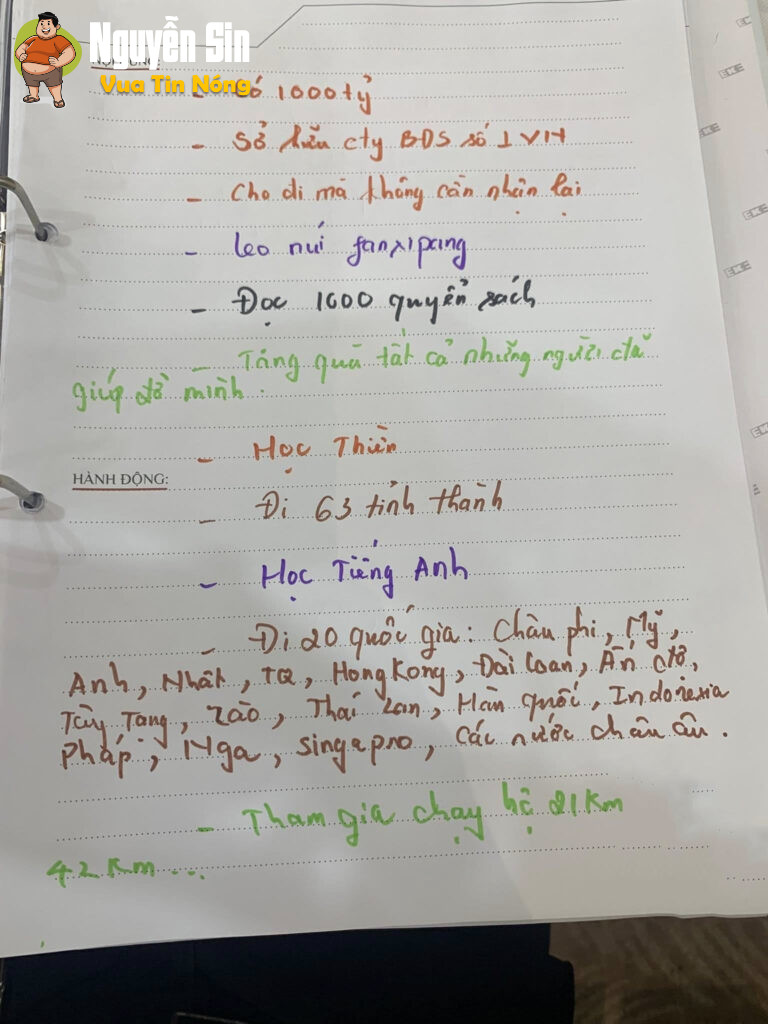 Nguyễn Sin
Vua Tin Nóng
- Có 1000 tỷ
- Sở hữu cty BĐS số 1 VN
- Cho đi mà không cần nhận lại
- leo núi fanxipang
- Đọc 1000 quyển sách
- Tảng quà tất cả những người đã
giúp đỡ mình.
- Học Thiền
HÀNH ĐỘNG:
- Đi 63 tỉnh thành
- Học Tiếng Anh
- Đi 20 quốc gia: Châu phi, Mỹ,
Anh, Nhật, TQ, HongKong, Đài Loan, Ấn độ,
Tây Tạng, Lào, Thái Lan, Hàn quốc, Indonexia
Pháp, Nga, singapro, các nước châu âu.
- Tham gia chạy bộ 21Km
42Km...